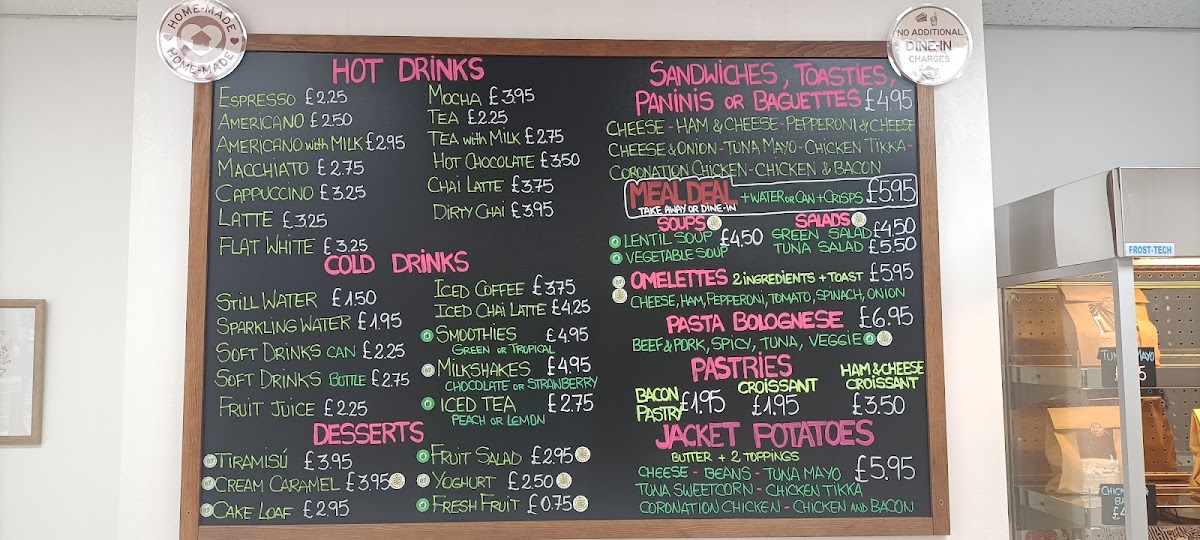 HOME-MADE
HOME-MADE
NO ADDITIONAL
DINE-IN
CHARGES
HOT DRINKS
ESPRESSO £2.25
AMERICANO £2.50
AMERICANO with MILK £2.95
MACCHIATO £2.75
CAPPUCCINO £3.25
LATTE £3.25
FLAT WHITE £3.25
MOCHA £3.95
TEA £2.25
TEA with MILK £2.75
HOT CHOCOLATE £3.50
CHAI LATTE £3.75
DIRTY CHAI £3.95
COLD DRINKS
STILL WATER £1.50
SPARKLING WATER £1.95
SOFT DRINKS CAN £2.25
SOFT DRINKS BOTTLE £2.75
FRUIT JUICE £2.25
ICED COFFEE £3.75
ICED CHAI LATTE £4.25
SMOOTHIES £4.95
GREEN OR TROPICAL
MILKSHAKES £4.95
CHOCOLATE OR STRAWBERRY
ICED TEA £2.75
PEACH OR LEMON
DESSERTS
TIRAMISÚ £3.95
CREAM CARAMEL £3.95
CAKE LOAF £2.95
FRUIT SALAD £2.95
YOGHURT £2.50
FRESH FRUIT £0.75
SANDWICHES, TOASTIES,
PANINIS OR BAGUETTES £4.95
CHEESE - HAM & CHEESE - PEPPERONI & CHEESE
CHEESE & ONION - TUNA MAYO - CHICKEN TIKKA -
CORONATION CHICKEN - CHICKEN & BACON
MEAL DEAL + WATER OR CAN + CRISPS £5.95
TAKE AWAY OR DINE-IN
SOUPS
LENTIL SOUP £4.50
VEGETABLE SOUP
SALADS
GREEN SALAD £4.50
TUNA SALAD £5.50
OMELETTES 2 INGREDIENTS + TOAST £5.95
CHEESE, HAM, PEPPERONI, TOMATO, SPINACH, ONION
PASTA BOLOGNESE £6.95
BEEF & PORK, SPICY, TUNA, VEGGIE
PASTRIES
BACON PASTRY £1.95
CROISSANT £1.95
HAM & CHEESE CROISSANT £3.50
JACKET POTATOES
BUTTER + 2 TOPPINGS £5.95
CHEESE - BEANS - TUNA MAYO
TUNA SWEETCORN - CHICKEN TIKKA
CORONATION CHICKEN - CHICKEN AND BACON
FROST-TECH
TUNA MAYO